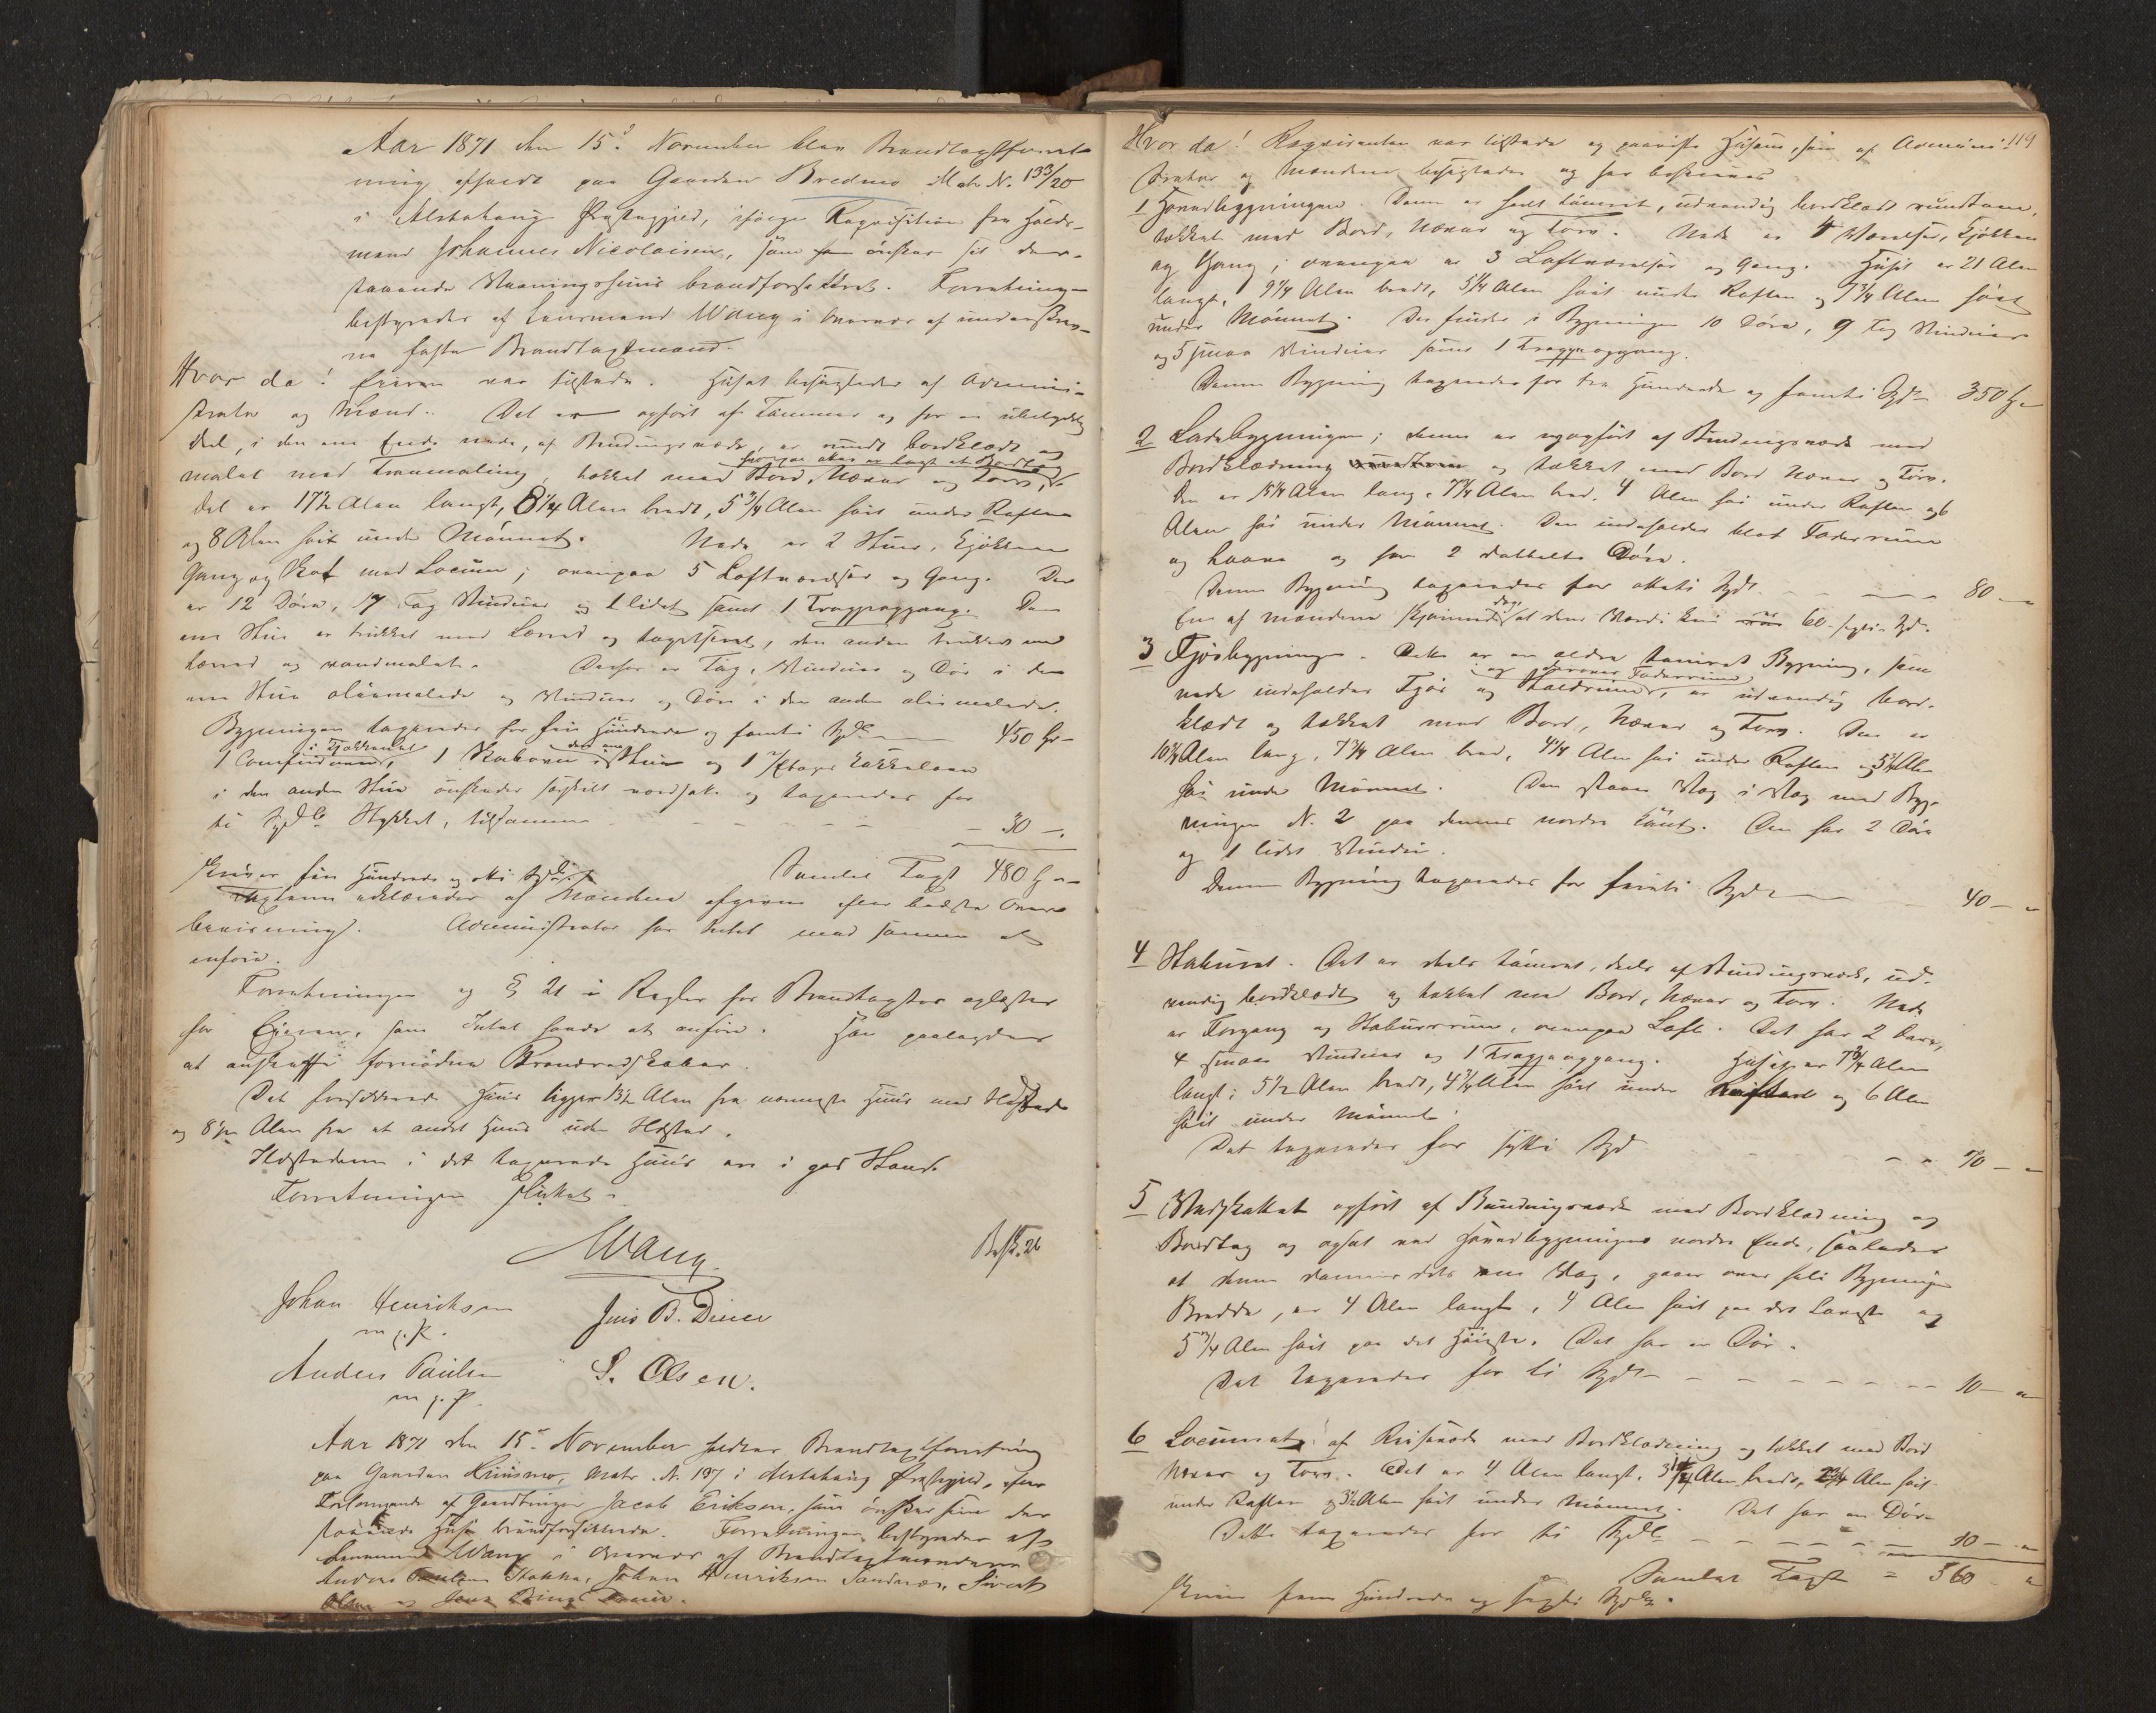 Aar 1871 den 15de November blev Brandtaxtforret-
ning afholdt paa Gaarden Bredmo Matr N. 133/20
i Alstahaug Præstegjeld, ifølge Requisition fra Huus-
mand Johannes Nicolaisen, som ønsker sit der-
staaende Vaaningshuus brandforsikret. Forretningen
bestyredes af Lensmand Wang i Overvær af undersskrev-
ne faste Brandtaxtmænd.
Hvor da! Eieren var tilstede. Huset besigtedes af Admini-
strator og Mænd. Det er opført af Tømmer og for en ubetydelig
Deel, i den ene Ende nede, af Bindingsværk, er rundt bordklædt og
malet med Tranmaling, tækket med Bord, Næver og Torv,
det er 17½ Alen langt, 8¼ Alen bredt, 5¾ Alen høit under Raften
og 8 Alen høit under Mønnet. Nede er 2 Stuer, Kjøkken
Gang og Skot med Locum; ovenpaa 5 Loftværelser og Gang. Der
er 12 Døre, 17 Fag Vinduer og 1 lidet samt 1 Trappopgang. Den
ene Stue er trukket med Lærred og tapetseret, den anden trukket med
Lærred og vandmalet. Derfor er Tag, Vinduer og Dør i den
ene Stue oliemalede og Vinduer og Døre i den anden oliemalede.
Bygningen taxeredes for fire Hundrede og femti Spd. 450 Sp
i Kjøkkenet
1 Comfur, 1 Kakovn i den ene Stue og 1 Etages Kakkelovn
i den anden Stue ønskedes særskilt ansat og taxeredes for
ti Spdlr Stykket, tilsammen - - - - 30 -
Skriver fire Hundrede og otti Spdlr. Samlet Taxt 480 Sp
Taxterne erklæredes af Mændene afgivne efter bedste Over-
beviisning. Administrator har Intet mod samme at
anføre.
Forretningen og § 21 i Regler for Brandtaxter oplæstes
for Eieren, som Intet havde at anføre. Han paalagdes
at anskaffe fornødne Brandredskaber.
Det forsikrede Huus ligger 13½ Alen fra nærmeste Huus med Ildsted
og 8½ Alen fra et andet Huus uden Ildsted.
Ildstederne i det taxerede Huus ere i god Stand.
Forretningen sluttet.
Wang.
Besk. 26
Johan Henriksen Jens B. Dine
m. p. P.
Anders Paulsen S. Olsen.
m. p. P.
Aar 1871 den 15de November holdtes Brandtaxtforretning
paa Gaarden Kiusmo, Matr. N. 137 i Alstahaug Præstegjeld, efter
Forlangende af Gaardbruger Jacob Eriksen, som ønsker sine der
staaende Huse brandforsikrede. Forretningen bestyredes af
Lensmand Wang i Overvær af Brandtaxtmændene
Anders Paulsen, Johan Henriksen Sandnæs, Sivert
Olsen og Jens Bing
119
Hvor da! Requirenten var tilstede og paaviste Husene, som af Admini-
strator og Mændene besigtedes og her beskrives
1 Hovedbygningen. Denne er heelt tømret, udvendig bordklædt rundtom,
tækket med Bord, Næver og Torv. Nede er 4 Værelser, Kjøkken
og Gang; ovenpaa er 3 Loftværelser og Gang. Huset er 21 Alen
langt, 9¼ Alen bredt, 5¼ Alen høit under Raften og 7¾ Alen høit
under Mønnet. Der findes i Bygningen 10 Døre, 9 Fag Vinduer
og 5 smaa Vinduer samt 1 Trappeopgang.
Denne Bygning taxeredes for tre Hundrede og femti Spd. 350 Sp
2 Ladebygningen; denne er nyopført af Bindingsværk med
Bordklædning og tækket med Bord Næver og Torv.
Den er 15¼ Alen lang, 7¾ Alen bred, 4 Alen høi under Raften og 6
Alen høi under Mønnet. Den indeholder blot Foderrum
og Laave og har 2 dobbelte Døre.
Denne Bygning taxeredes for otteti Spd. - - - 80 -
En af Mændene skjønnede dog, at dens Værdi kun er 60 sexti Spd.
3 Fjøsbygningen. Dette er en ældre tømret Bygning, som
og derover Foderrum
nede indeholder Fjøs og, er udvendig bord-
klædt og tækket med Bord, Næver og Torv. Den er
10¾ Alen lang, 7¾ Alen bred, 4¼ Alen høi under Raften og 5½ Alen
høi under Mønnet. Den staar Væg i Væg med Byg-
ningen N. 2 paa dennes nordre Kant. Den har 2 Døre
og 1 lidet Vindue.
Denne Bygning taxeredes for Spd. - - 40 -
4 Staburet. Det er deels tømret, deels af Bindingsværk, ud-
vendig bordklædt og tækket med Bord, Næver og Torv. Nede
er Forgang og Staburrum, ovenpaa Loft. Det har 2 Døre,
4 smaa Vinduer og 1 Trappeopgang. Huset er 7¾ Alen
langt, 5½ Alen bredt, 4¾ Alen høit under Raften og 6 Alen
høit under Mønnet.
Det taxeredes for sytti Spd - - - 70 -
5 Vedskottet opført af Bindingsværk med Bordklædning og
Bordtag og opsat ved Hovedbygningens nordre Ende, saaledes
at denne danner dets ene Væg, gaaer over hele Bygningens
Bredde, er 4 Alen langt, 4 Alen høit paa det Laveste og
5¾ Alen høit paa det Høieste. Det har en Dør.
Det taxeredes for ti Spd. - - - - 10 -
6 Locumet af Reisværk med Bordklædning og tækket med Bord
Næver og Torv. Det er 4 Alen langt, Alen bredt, Alen høit
under Raften og 3½ Alen høit under Mønnet. Det har en Dør.
Dette taxeredes for ti Spd. - - - - 10 -
Samlet Taxt = 560
Skriver fem Hundrede og sexti Spdlr.